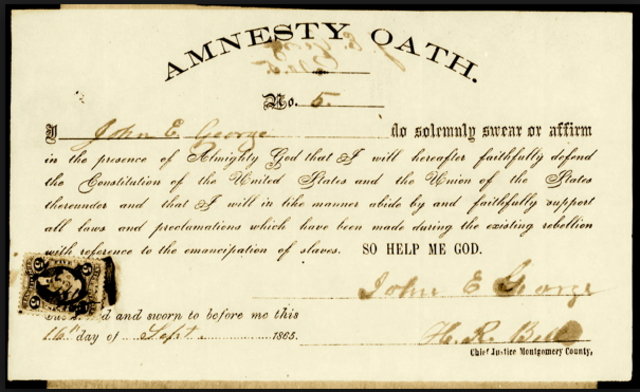 AMNESTY OATH.
No. 5.
I John E. George do solemnly swear or affirm
in the presence of Almighty God that I will hereafter faithfully defend
the Constitution of the United States and the Union of the States
thereunder and that I will in like manner abide by and faithfully support
all laws and proclamations which have been made during the existing rebellion
with reference to the emancipation of slaves. SO HELP ME GOD.
John E George
and sworn to before me this
16th day of Sept 1865.
H. R. Bell
Chief Justice Montgomery County,